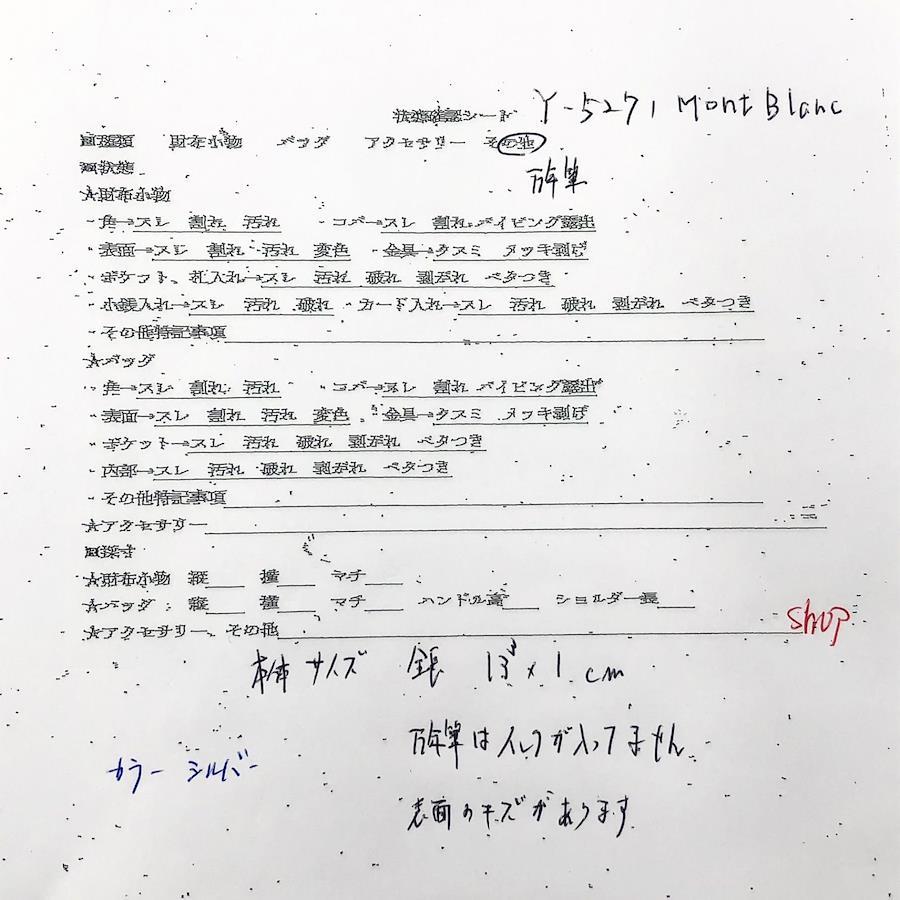 状態確認シート Y-5271 MontBlanc
■種類 財布小物 バッグ アクセサリー その他
万年筆
■状態
★財布小物
・角→スレ 割れ 汚れ ・コバ→スレ 割れ パイピング露出
・表面→スレ 割れ 汚れ 変色 ・金具→クスミ メッキ剥げ
・ポケット、札入れ→スレ 汚れ 破れ 剥がれ ベタつき
・小銭入れ→スレ 汚れ 破れ ・カード入れ→スレ 汚れ 破れ 剥がれ ベタつき
・その他特記事項
★バッグ
・角→スレ 割れ 汚れ ・コバ→スレ 割れ パイピング露出
・表面→スレ 割れ 汚れ 変色 ・金具→クスミ メッキ剥げ
・ポケット→スレ 汚れ 破れ 剥がれ ベタつき
・内部→スレ 汚れ 破れ 剥がれ ベタつき
・その他特記事項
★アクセサリー
■採寸
★財布小物 縦 横 マチ
★バッグ 縦 横 マチ ハンドル高 ショルダー長
★アクセサリー、その他
shop
本体サイズ 全長 13 x 1 cm
万年筆はインクが入ってません
カラー シルバー
表面のキズがあります